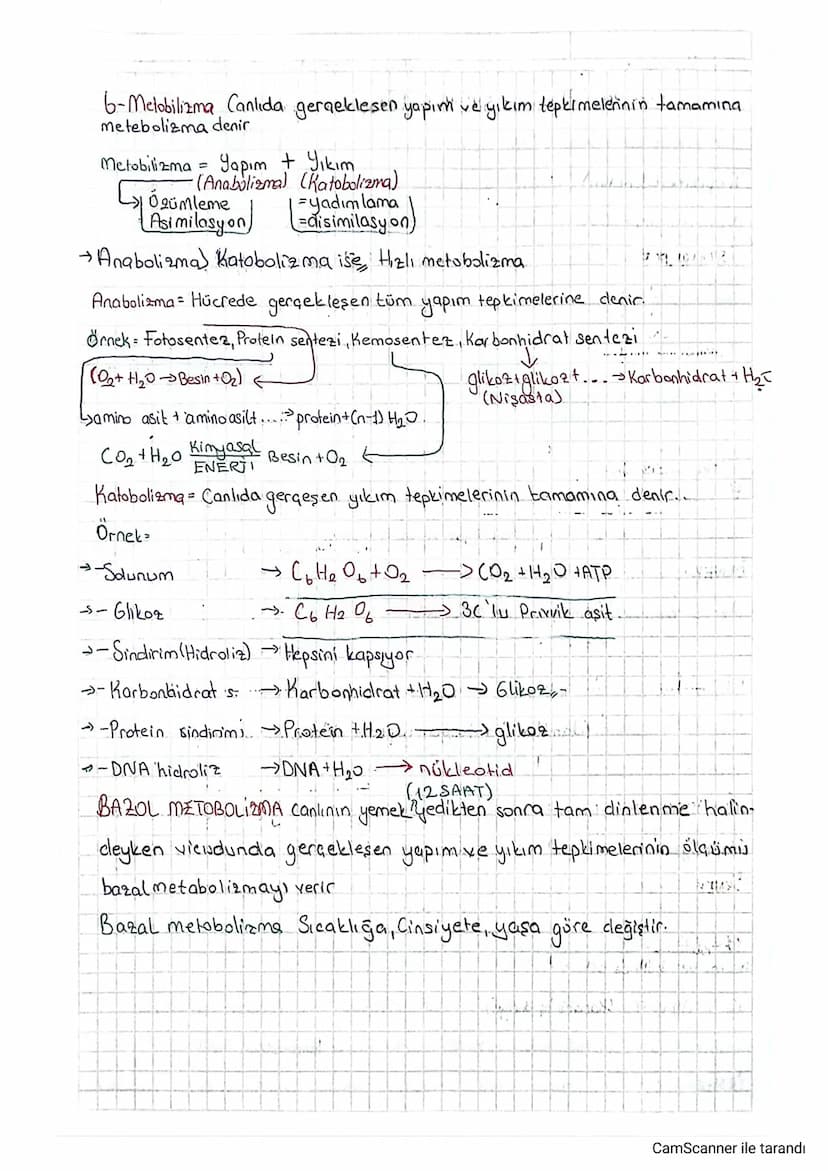 6-Metobilizma Canlıda gerçekleşen yapım ve yıkım tepkimelerinin tamamına
metebolizma denir
Metobilizma = Yapım + Yıkım
(Anabolizma) (Katobolizma)
Özümleme =yadımlama
Asimilasyon =disimilasyon
→ Anabolizma> Katobolizma ise, Hızlı metobolizma
Anabolizma = Hücrede gerçekleşen tüm yapım tepkimelerine denir.
Örnek = Fotosentez, Protein sentezi, Kemosentez, Karbonhidrat sentezi
(O2+ H2O → Besin+O2) glikoz+glikozt... → Karbonhidrat + H2O
(Nişasta)
amino asit + aminoasilt....→ protein+(n-1) H2O.
CO2 + H2O Kimyasal ENERJİ Besin+O2
Katobolizma = Canlıda gerçeşen yıkım tepkimelerinin tamamına denir..
Örnek=
→-Solunum → C6 H2 O6 + O2 → CO2 +H2O +ATP
→- Glikoz → C6 H2 O6 → 3C'lu Prüvik asit.
→-Sindirim(Hidroliz) → Hepsini kapsıyor
→- Karbonhidrat s. → Karbonhidrat +H2O → Glikoz
→-Protein sindirimi → Protein +H2O. → glikoz
→-DNA hidroliz → DNA+H2O → nükleotid
(12 SAAT)
BAZOL METOBOLİZMA canlının yemek yedikten sonra tam dinlenme halin-
deyken vicudunda gerçekleşen yapım ve yıkım tepkimelerinin ölçümü
bazal metabolizmayı verir
Bazal metobolizma Sıcaklığa, Cinsiyete, yaşa göre değiştir.
CamScanner ile tarandı